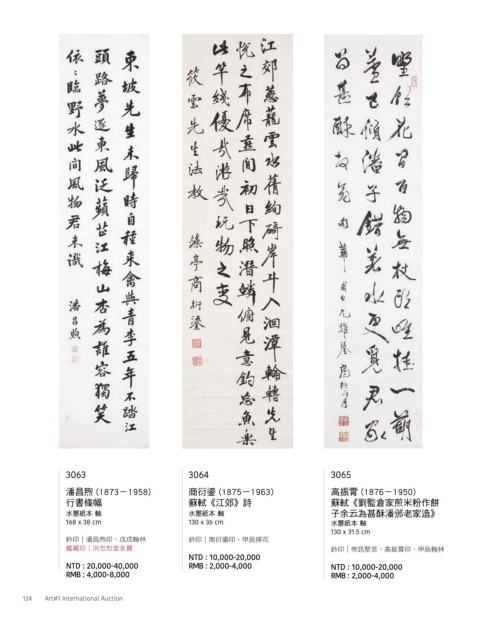 東坡先生未歸時自種來禽與青李五年不踏江
頭路夢逐東風泛蘋芷江梅山杏為誰容獨笑
依依臨野水此間風物君未識
潘昌煦
江郊蔥蘢雲水蒨絢碕岸斗入洄潭輪轉先生
悅之布席閒初日下照潛鱗俯見意釣忘魚樂
此竿綫優哉游哉玩物之變
筱雲先生法教
藻亭商衍瀛
野飲花間百物無杖頭唯挂一葫
蘆已傾潘子錯著水更覓君家
為甚酥
3063
潘昌煦 (1873－1958)
行書條幅
水墨紙本 軸
168 x 38 cm
鈐印｜潘昌煦印、戊戌翰林
鑑藏印｜洪忠恕堂永寶
NTD : 20,000-40,000
RMB : 4,000-8,000
3064
商衍瀛 (1875－1963)
蘇軾《江郊》詩
水墨紙本 軸
130 x 36 cm
鈐印｜商衍鎏印、甲辰探花
NTD : 10,000-20,000
RMB : 2,000-4,000
3065
高振霄 (1876－1950)
蘇軾《劉監倉家煎米粉作餅
子余云為甚酥潘邠老家造》
水墨紙本 軸
130 x 31.5 cm
鈐印｜高振霄印、甲辰翰林
NTD : 10,000-20,000
RMB : 2,000-4,000
124 Art#1 International Auction